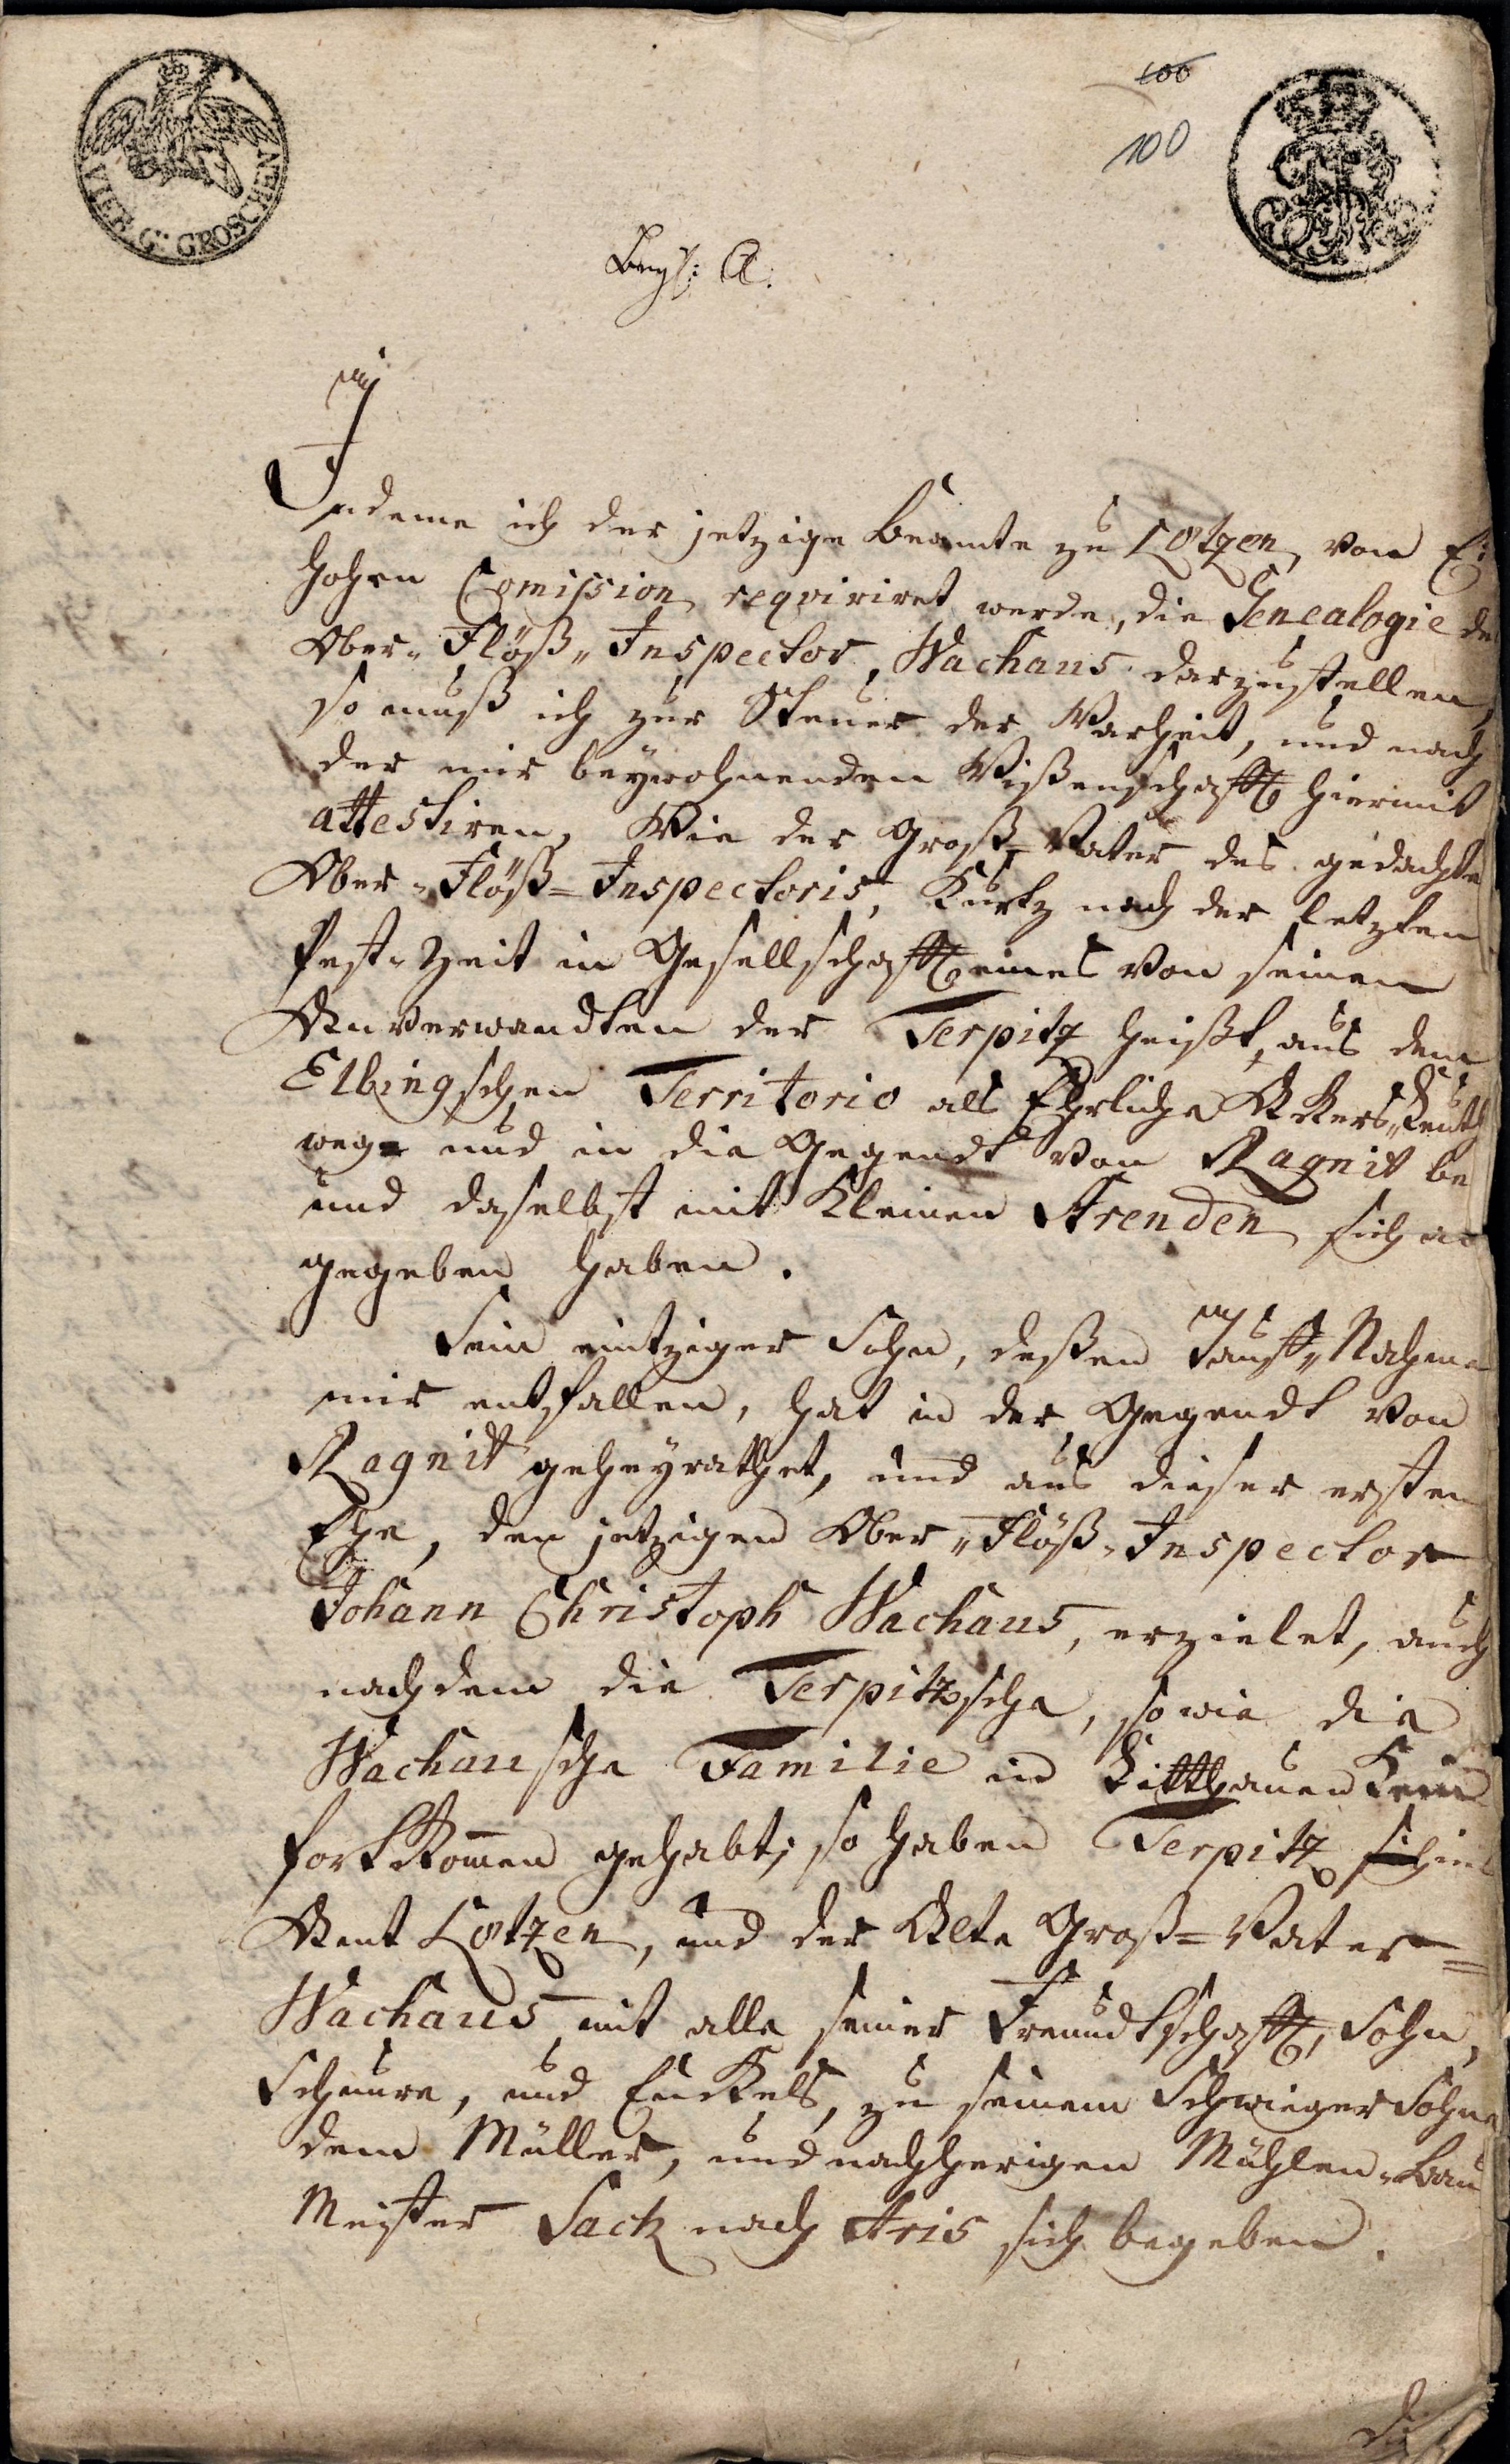 100
100
VIER G. GROSCHEN
FWR
Beyl: A.
Indeme ich der jetzige Beamte zu Lötzen, von E:
hohen Comission requiriret werde, die Genealogie de
Ober-Flöß-Inspector Wachaus darzustellen,
so muß ich zur Steuer der Warheit, und nach
der mir beywohnenden Wißenschafft hiermit
attestiren, Wie der Groß-Vater des gedachte
Ober-Flöß=Inspectoris, Kurtz nach der letzten
Pest-Zeit in Gesellschafft eines von seinen
Anverwandten der Terpitz heißt, aus dem
Elbingschen Territorio als Ehrliche Akers Leuth
weg= und in die Gegendt von Ragnit be
und daselbst mit Kleinen Arenden sich a
gegeben haben.
Sein eintziger Sohn, deßen Tauff-Nahme
mir entfallen, hat in der Gegendt von
Ragnit geheyrathet, und aus dieser ersten
Ehe, den jetzigen Ober-Flöß-Inspector
Johann Christoph Wachaus, erzielet, auch
nachdem die Terpitzsche, so wie die
Wachausche Familie in Litthauen Kein
fortkomen gehabt; so haben Terpitz sich ins
Amt Lötzen, und der Alte Groß=Vater=
Wachaus mit alle seiner Freundtschafft, Sohn,
Schnure, und Enckels, zu seinem Schwieger Sohne
dem Müller, und nachherigen Mühlen-Bau
Meister Sack nach Aris sich begeben.